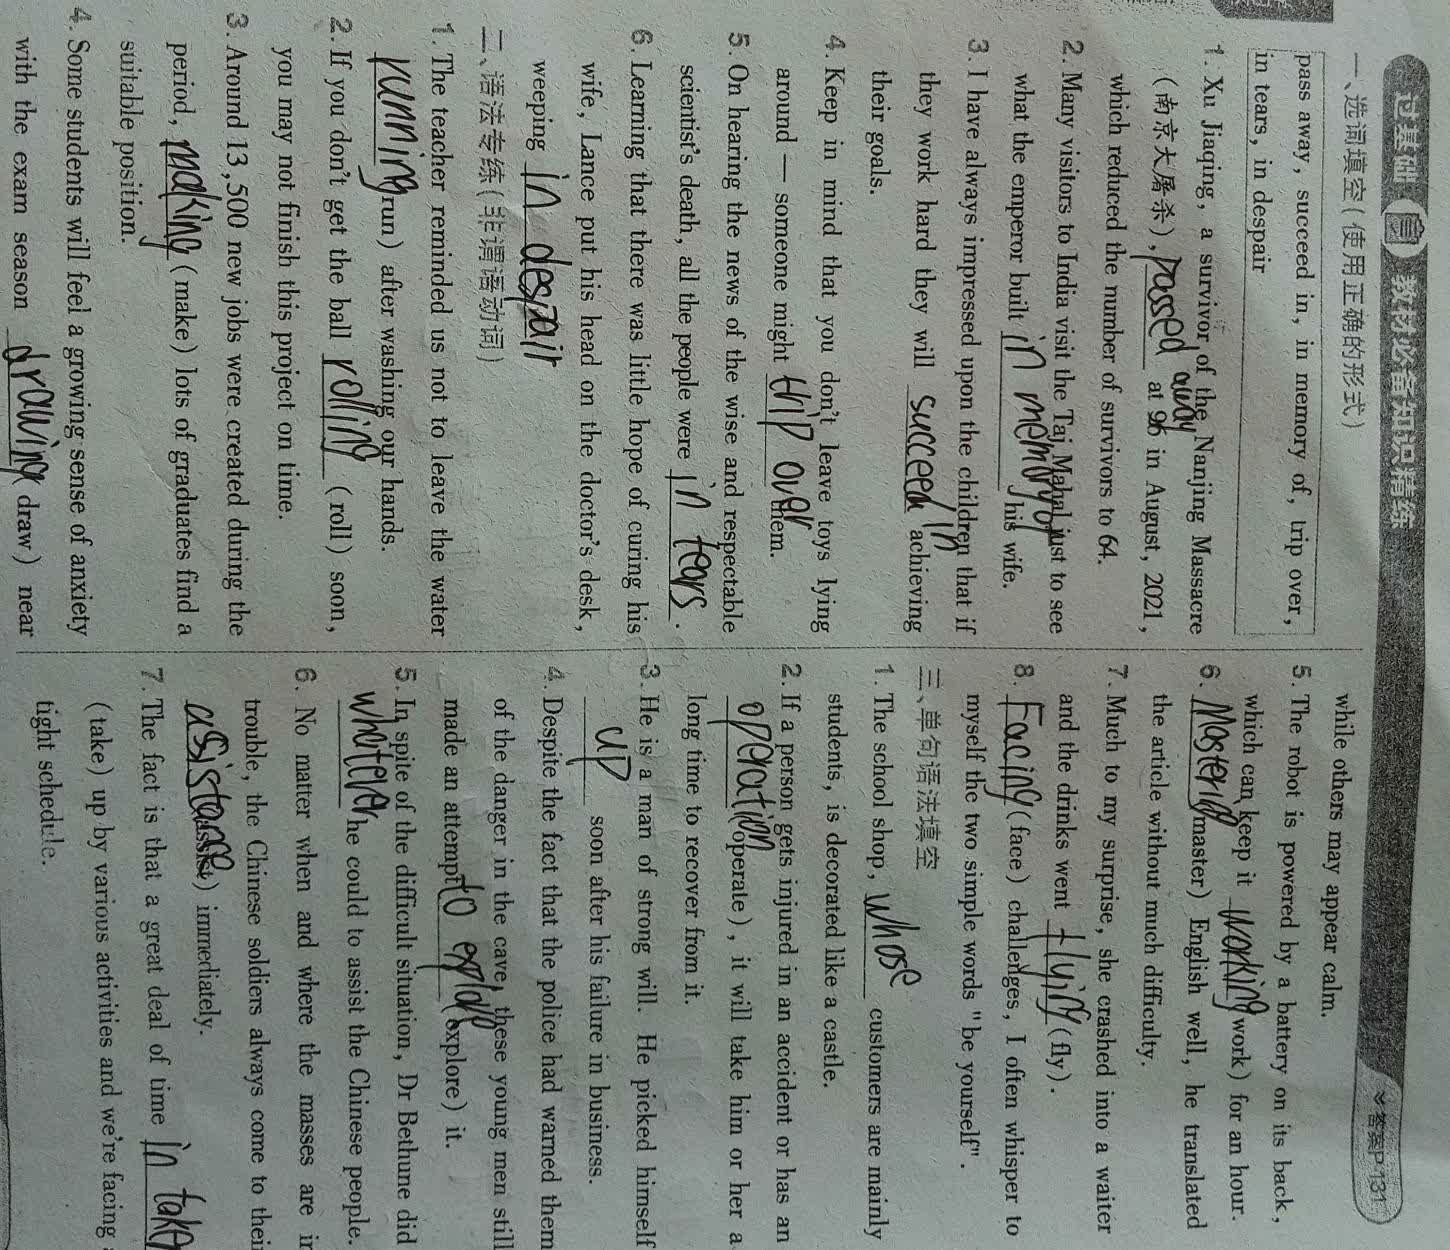 过基础 教材必备知识精练
答案P131
一、选词填空(使用正确的形式)
pass away, succeed in, in memory of, trip over,
in tears, in despair
1. Xu Jiaqing, a survivor of the Nanjing Massacre
(南京大屠杀), passed away at 96 in August, 2021,
which reduced the number of survivors to 64.
2. Many visitors to India visit the Taj Mahal just to see
what the emperor built in memory of his wife.
3. I have always impressed upon the children that if
they work hard they will succeed in achieving
their goals.
4. Keep in mind that you don't leave toys lying
around — someone might trip over them.
5. On hearing the news of the wise and respectable
scientist's death, all the people were in tears.
6. Learning that there was little hope of curing his
wife, Lance put his head on the doctor's desk,
weeping in despair
二、语法专练(非谓语动词)
1. The teacher reminded us not to leave the water
running (run) after washing our hands.
2. If you don't get the ball rolling (roll) soon,
you may not finish this project on time.
3. Around 13,500 new jobs were created during the
period, making (make) lots of graduates find a
suitable position.
4. Some students will feel a growing sense of anxiety
with the exam season drawing (draw) near
while others may appear calm.
5. The robot is powered by a battery on its back,
which can keep it working (work) for an hour.
6. Mastering (master) English well, he translated
the article without much difficulty.
7. Much to my surprise, she crashed into a waiter
and the drinks went flying (fly).
8. Facing (face) challenges, I often whisper to
myself the two simple words "be yourself".
三、单句语法填空
1. The school shop, whose customers are mainly
students, is decorated like a castle.
2. If a person gets injured in an accident or has an
operation (operate), it will take him or her a
long time to recover from it.
3. He is a man of strong will. He picked himself
up soon after his failure in business.
4. Despite the fact that the police had warned them
of the danger in the cave, these young men still
made an attempt to explore (explore) it.
5. In spite of the difficult situation, Dr Bethune did
whatever he could to assist the Chinese people.
6. No matter when and where the masses are in
trouble, the Chinese soldiers always come to thei
assistance immediately.
7. The fact is that a great deal of time in take
(take) up by various activities and we're facing
tight schedule.